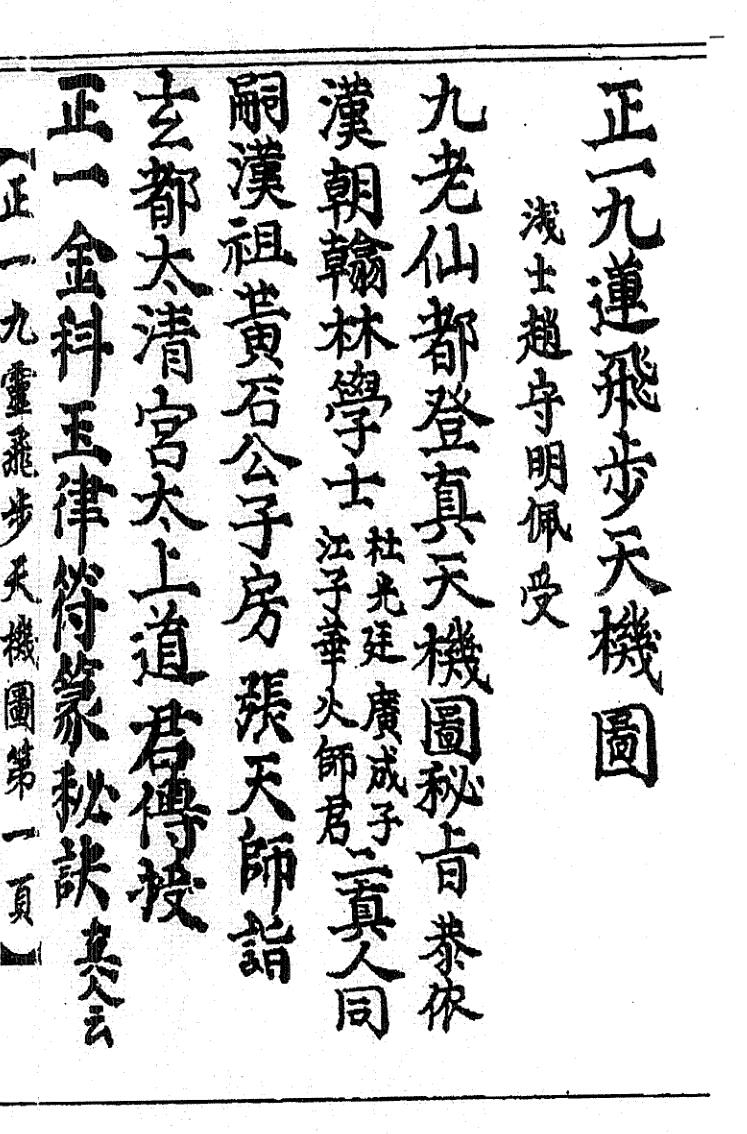 正一九蓮飛步天機圖
淺士趙守明佩受
九老仙都登真天機圖秘旨恭依
漢朝翰林學士杜光廷廣成子江子華火師君二真人同
嗣漢祖黃石公子房張天師詣
玄都太清宮太上道君傳授
正一金科玉律符篆秘訣真人云
【正一九靈飛步天機圖第一頁】